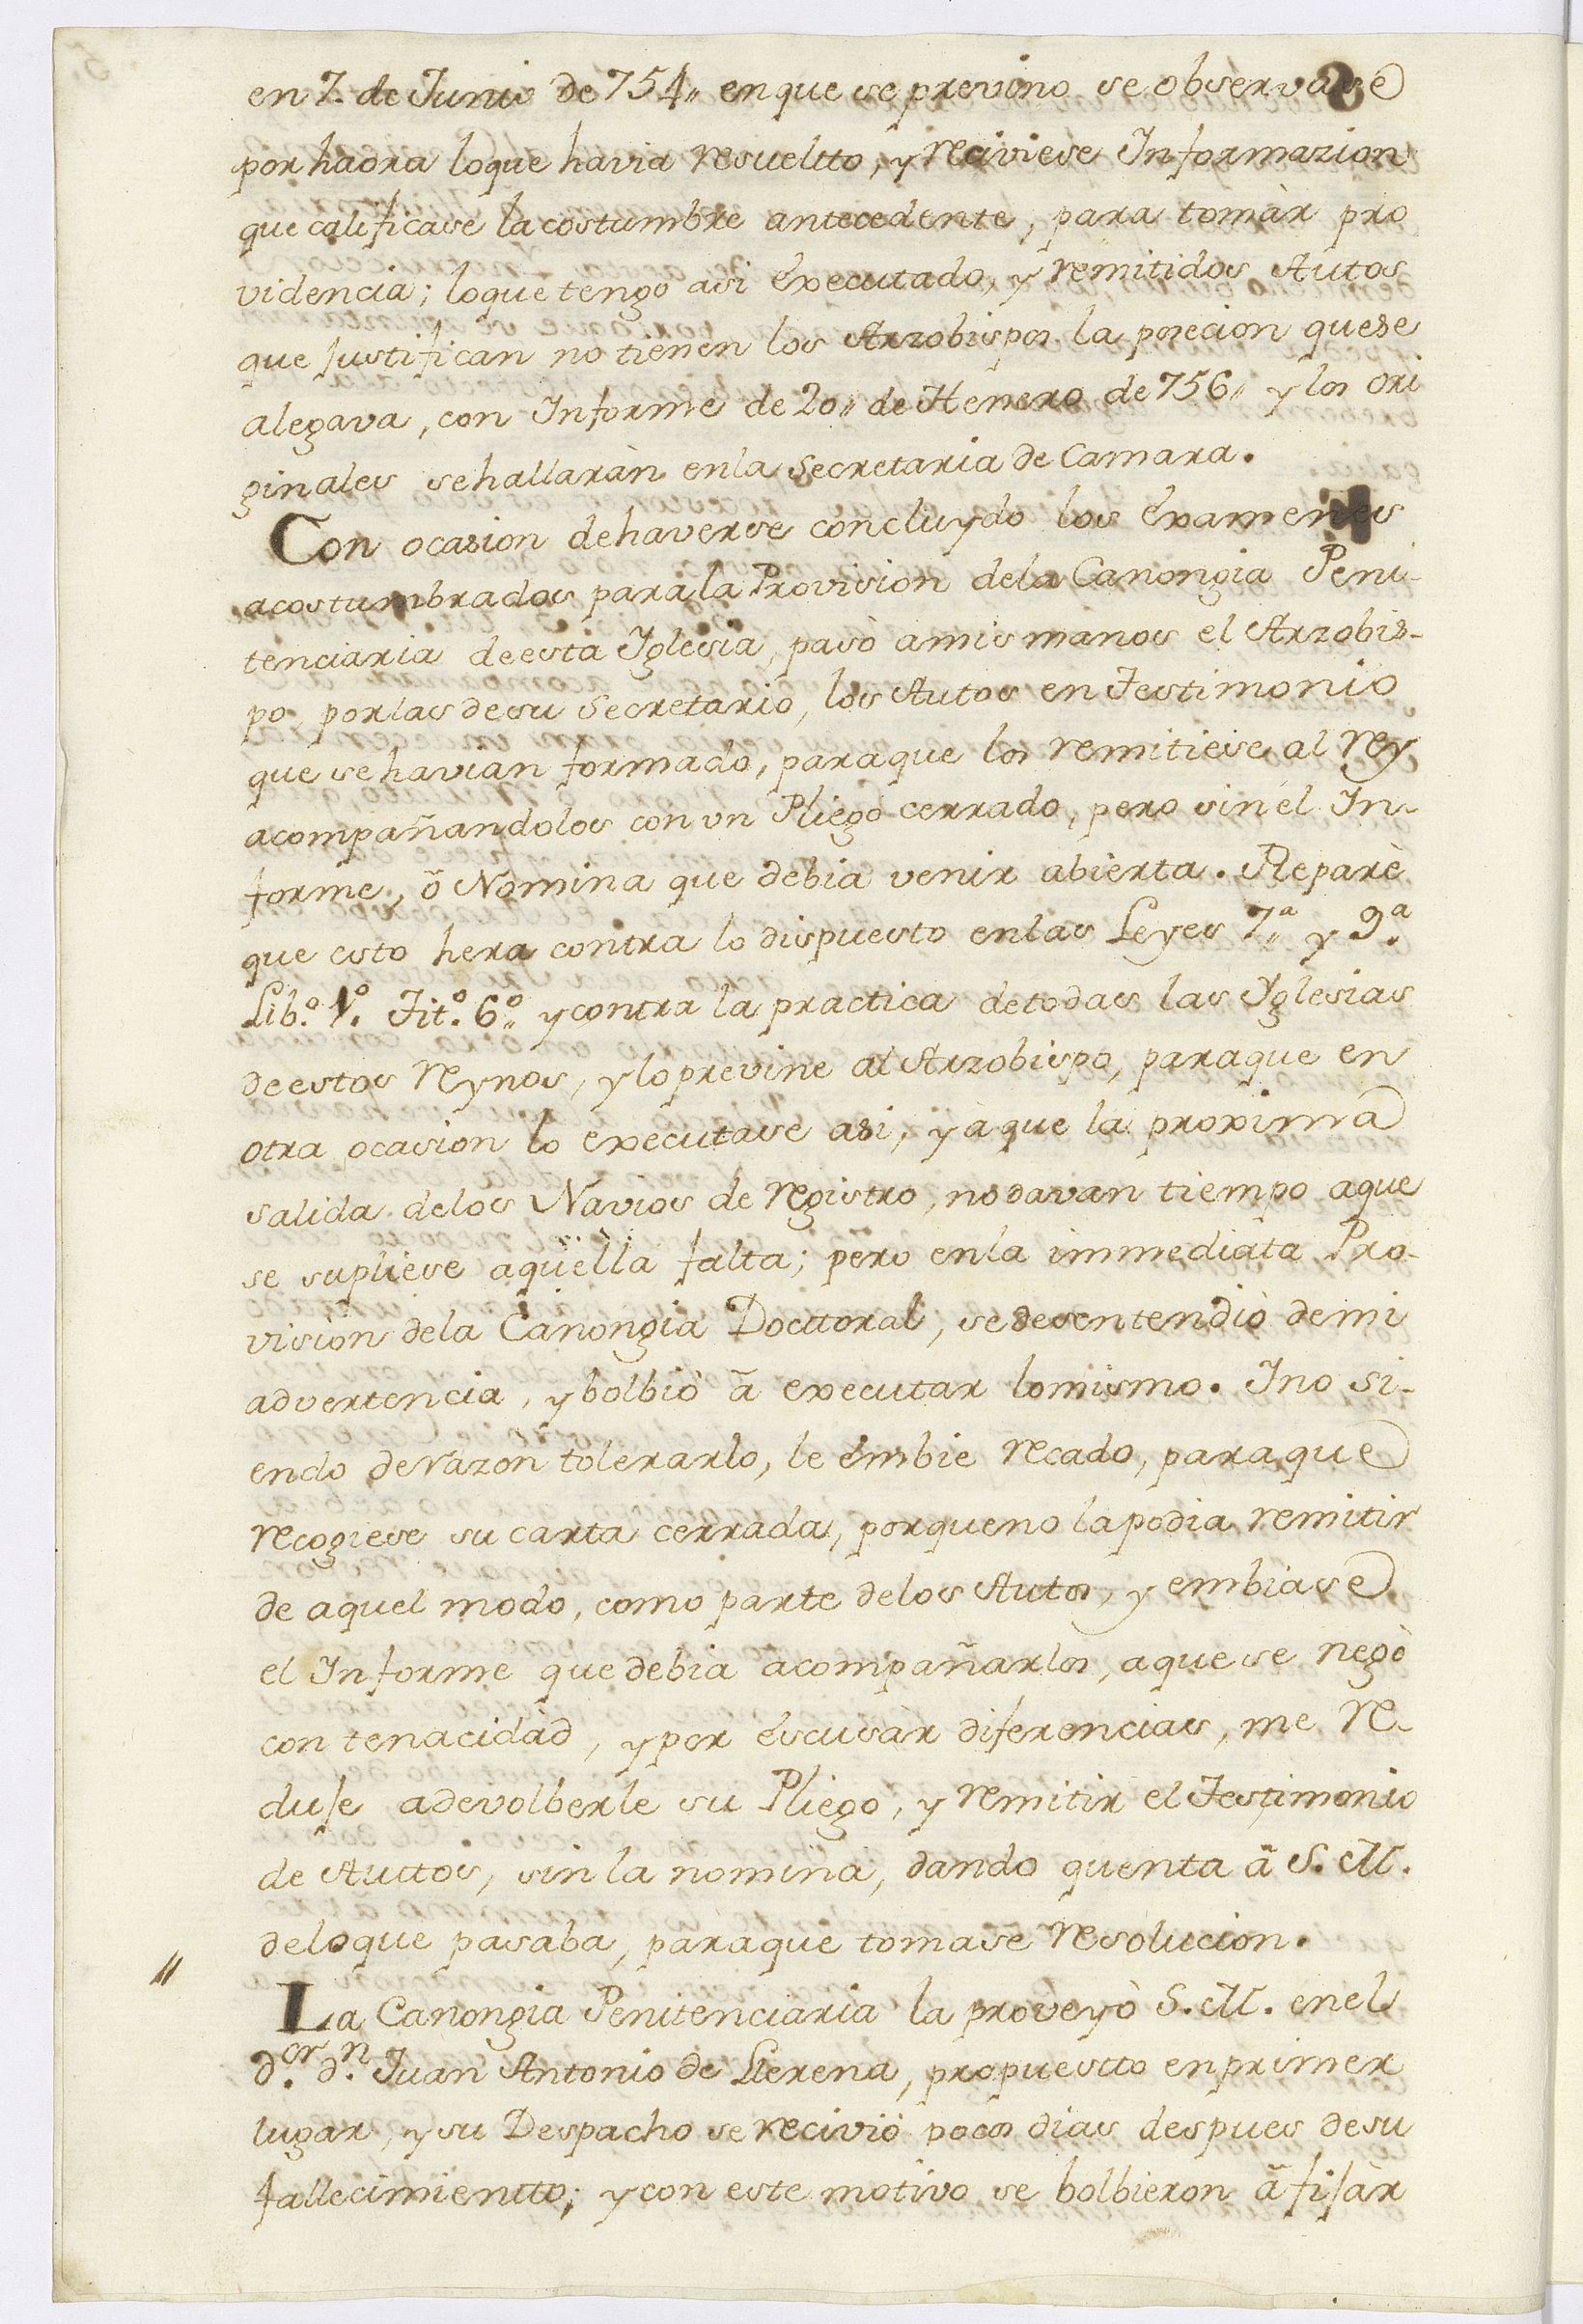 en 7. de Junio de 754,, en que se previno se observase
por haora loque havia resueltto, y reciviese Informazion
que calificase la costumbre antecedente, para tomàr pro
videncia; loque tengo asi executado, y remitidos Autos
que Justifican no tienen los Arzobispos la posecion quese
alegava, con Informe de 20,, de Henero de 756,, y los ori
ginales sehallaràn enla Secretaria de Camara.
Con ocasion dehaverse concluydo los examenes
acostumbrados parala Provision dela Canongia Peni-
tenciaria deesta Iglesia, pasò amis manos el Arzobis-
po, porlas desu Secretario, los Autos en Testimonio
que sehavian formado, paraque los remitiese al Rey
acompañandolos con vn Pliego cerrado, pero sin el In-
forme, õ Nomina que debia venir abierta. Reparè
que esto hera contra lo dispuesto enlas Leyes 7.ª y 9.ª
Lib.º 1.º Tit.º 6.º y contra la practica detodas las Yglesias
deestos Reynos, y lo previne al Arzobispo, paraque en
otra ocasion lo executase asi, yà que la proxima
salida delos Navios de registro, nodavan tiempo aque
se supliese aquella falta; pero enla immediata Pro-
vision dela Canongia Docttoral, sedesentendiò demi
advertencia, y bolbiò ã executar lomismo. Yno si-
endo derazon tolerarlo, le embie recado, paraque
recogiese su carta cerrada, porqueno lapodia remitir
de aquel modo, como parte delos Autos, y embiase
el Informe que debia acompañarlos, aquese negò
con tenacidàd, y por escusàr diferencias, me re-
duje adevolberle su Pliego, y remitir el Testimonio
de Auttos, sin la nomina, dando quenta ã S. M.
deloque pasaba, paraque tomase resolucion.
" La Canongia Penitenciaria la proveyò S. M. enel
d.or d.n Juan Antonio de Llerena, propuestto enprimer
lugar, y su Despacho se reciviò pocos dias despues desu
fallecimientto; y con este motivo se bolbieron ã fijàr